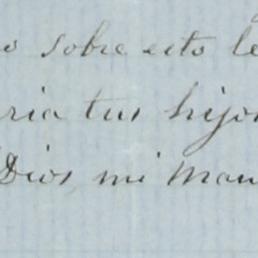 o sobre esto le
ria tus hijo
Dios mi man